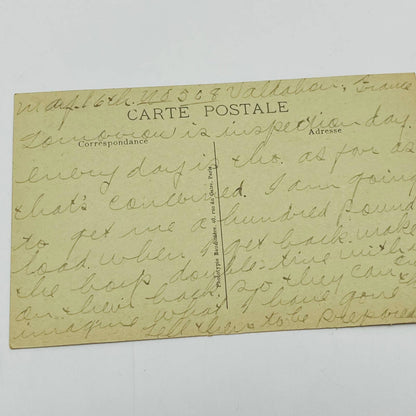 May 16th. No 308 Valdahon, France
CARTE POSTALE
Tomorrow is inspection day.
Correspondance
Adresse
every day is tho. as far as
that's concerned. I am going
to get me a hundred pound
load when I get back. make
the boys double-time with
on their back so they can
imagine what I have gone
Tell them to be prepared
Phototypie Bordelaise, rue de Guise, Paris